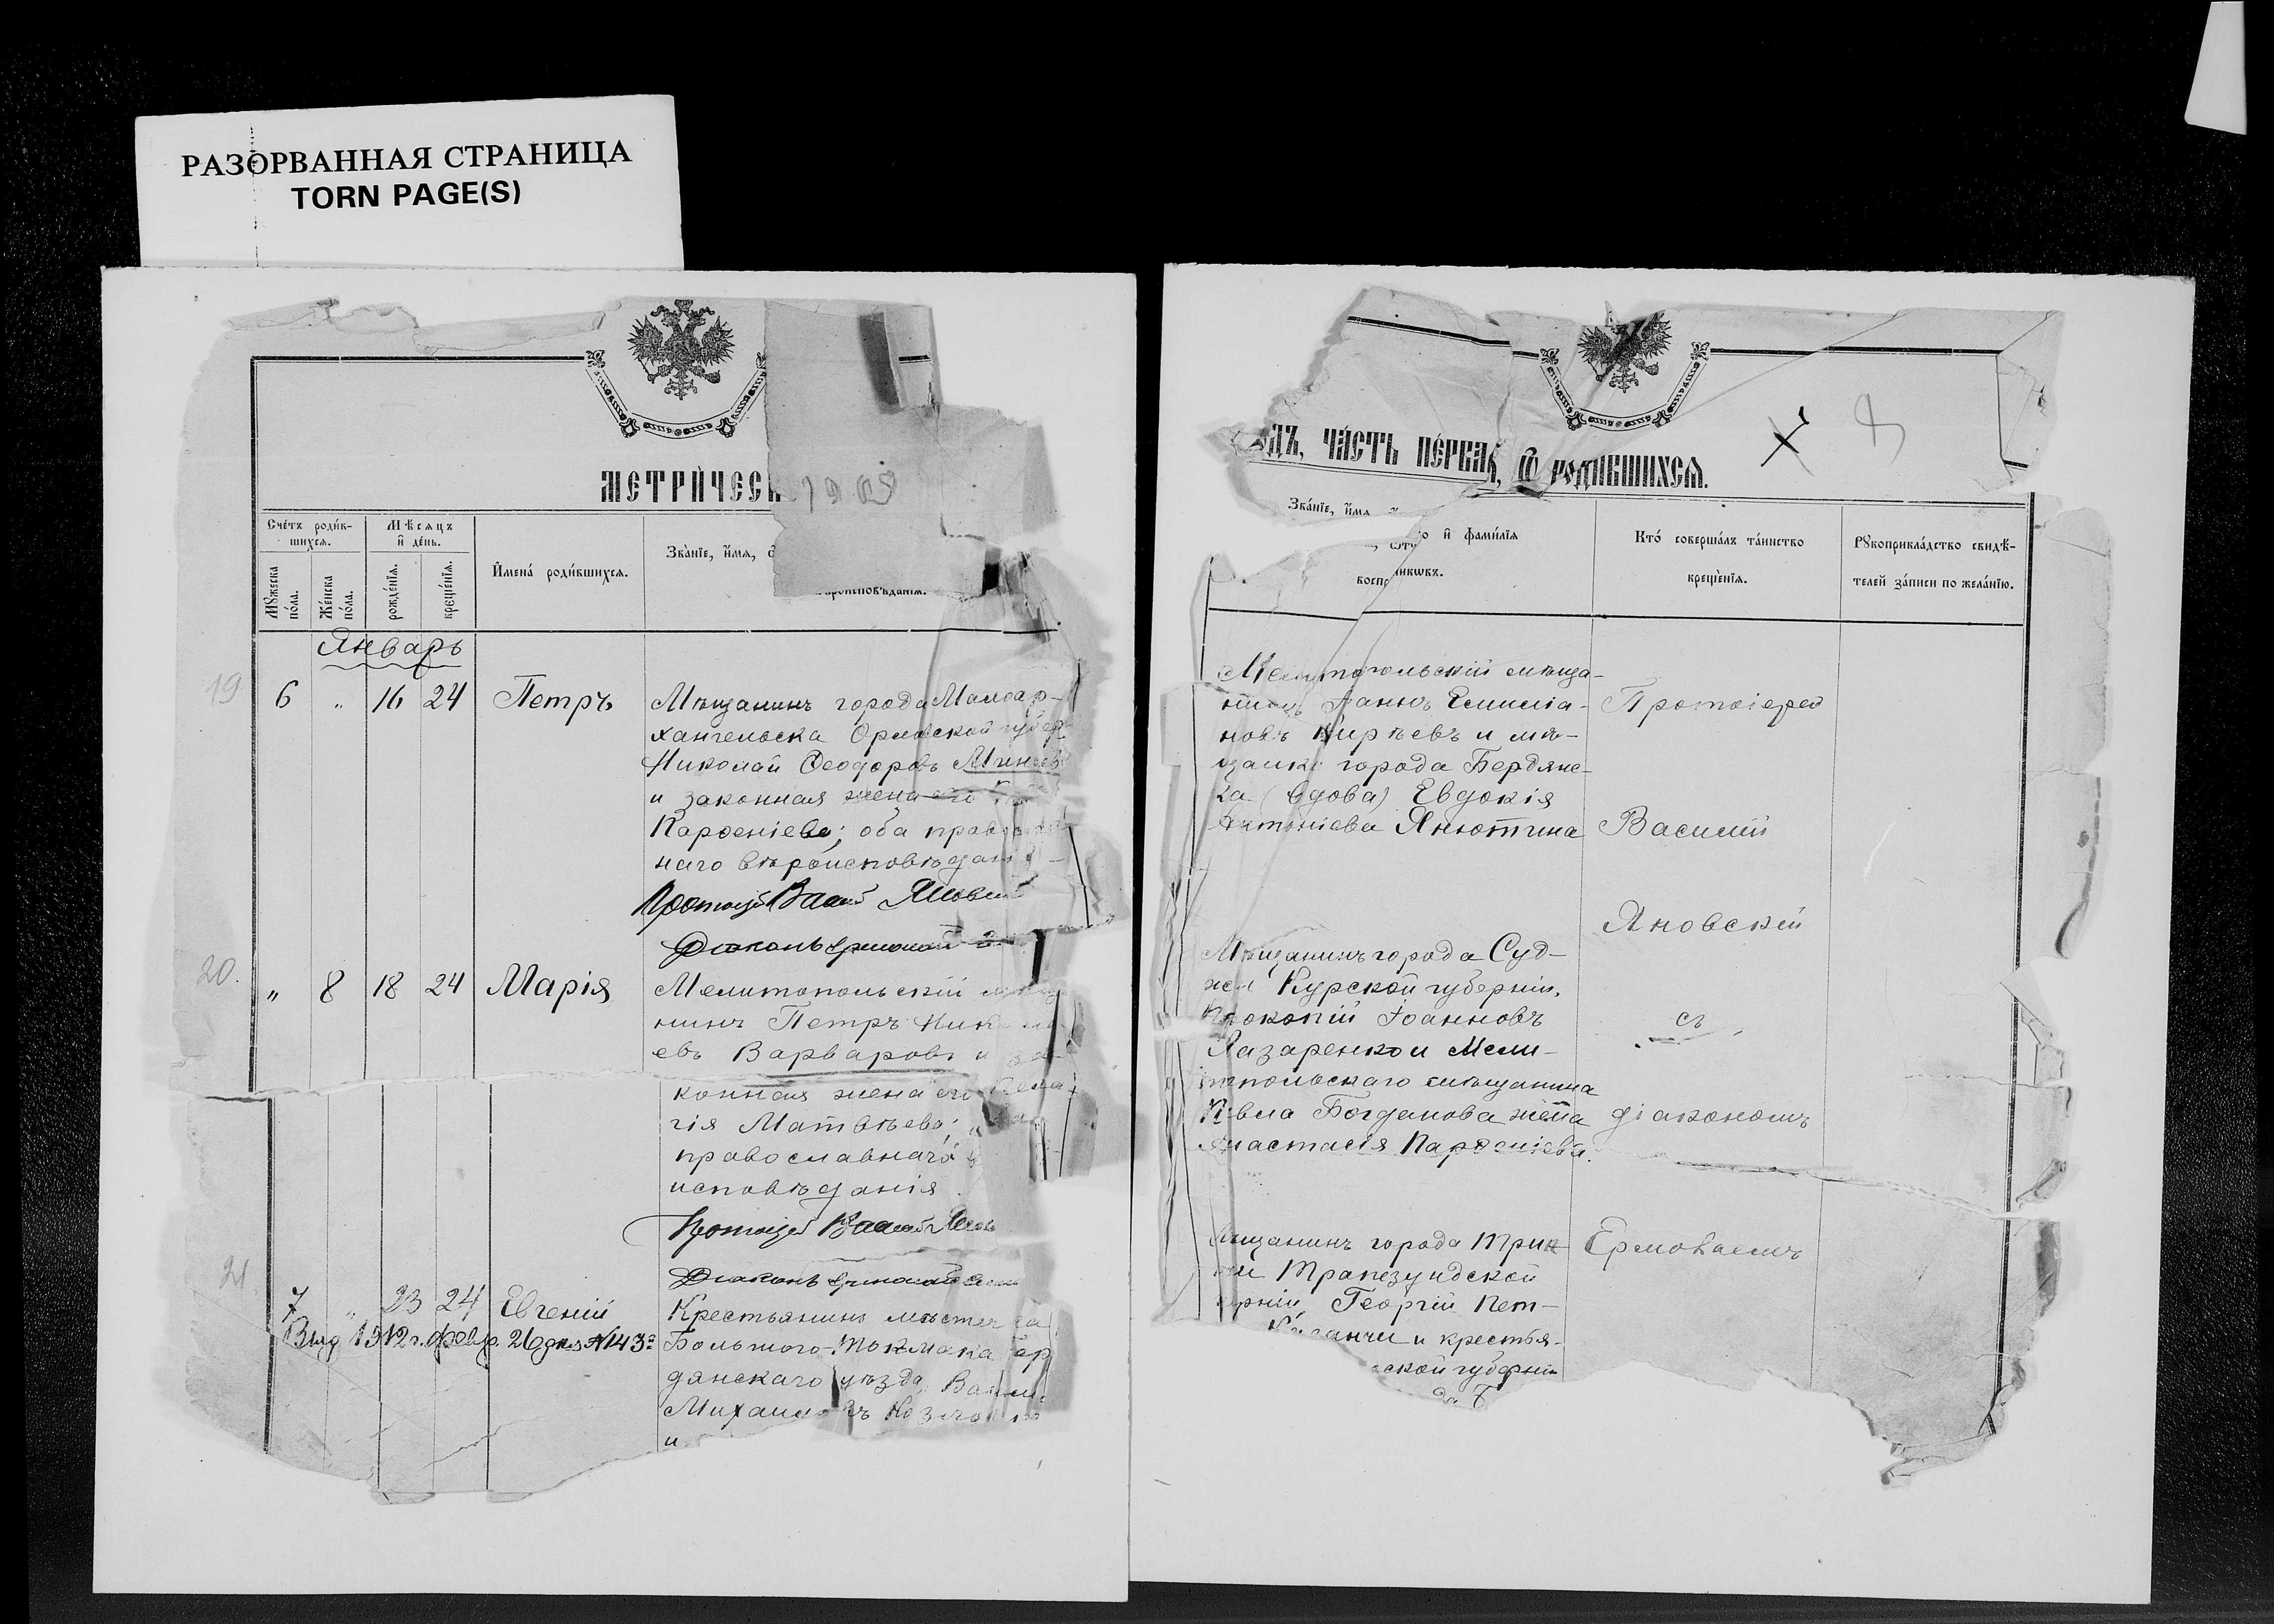 РАЗОРВАННАЯ СТРАНИЦА
TORN PAGE(S)
МЕТРИЧЕСК
1903
Счётъ роди́в-
шихся.
Мѣсяцъ
и де́нь.
Му́жеска
по́ла.
Же́нска
по́ла.
рожде́нія.
креще́нія.
Имена́ роди́вшихся.
Зва́ніе, и́мя,
вѣроисповѣданія.
Январь
19
6 " 16 24 Петръ
Мѣщанинъ города Малоар-
хангельска Орловской губер.
Николай Ѳеодоровъ Минаевъ
и законная жена его
Парѳеніева; оба православ
наго вѣроисповѣданія
Протоіерей Василій Яновскій
Діаконъ Ермолай
20.
" 8 18 24 Марія
Мелитопольскій мѣща
нинъ Петръ Никола
евъ Варваровъ и за-
конная жена его Пела-
гія Матвѣева;
православнаго
исповѣданія.
Протоіерей Василій Янов
Діаконъ Ермолай
21
7 " 23 24 Евгеній
Выд 1912 г. февр. 26 дня №143
Крестьянинъ мѣстечка
Большого-Токмака Бер
дянскаго уѣзда,
Михаиловъ
и
ОДЪ, ЧА́СТЬ ПЕ́РВАЯ, Ѽ РОДИ́ВШИХСЯ.
Зва́ніе, и́мя
о и фами́лія
воспр
никѡвъ.
Кто́ соверша́лъ та́инство
креще́нія.
Рукоприкла́дство свидѣ́-
телей за́писи по жела́нію.
Мелитопольскій мѣща-
нинъ Іаннъ Емиліа-
новъ Кирѣевъ и мѣ-
щанка города Бердянс-
ка (вдова) Евдокія
Антоніева Янютина
Протоіерей
Василій
Яновскій
Мѣщанинъ города Суд-
жи Курской губерніи,
Прокопій Іоанновъ
Лазаренко и Мели-
топольскаго мѣщанина
Павла Богданова жена
Анастасія Парѳеніева.
съ
діакономъ
Мѣщанинъ города Трип
ли Трапезундской
ерніи, Георгій Пет-
и крестья-
ской губерніи
да Б
Ермолаемъ